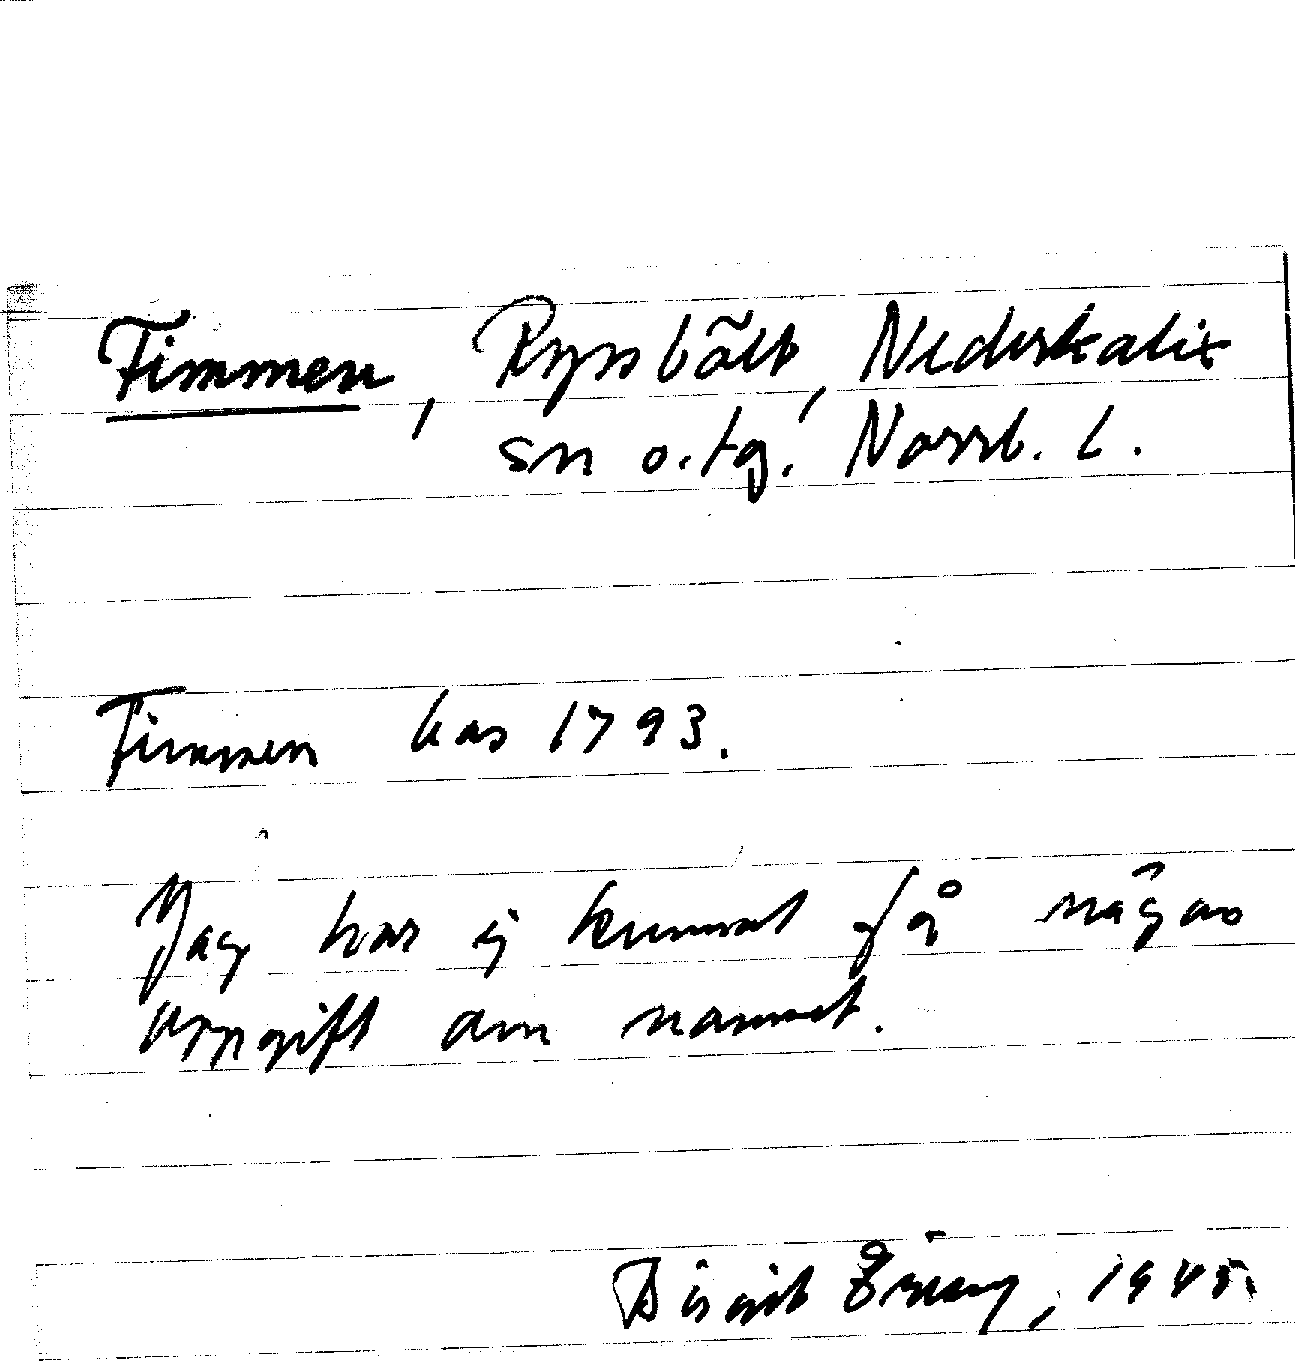 Timmen, Ryssbält, Nederkalix
sn o. tg. Norrb. l.
Timmen kas 1793.
Jag har ej kunnat få någon
uppgift om namnet.
Birgit 1945.